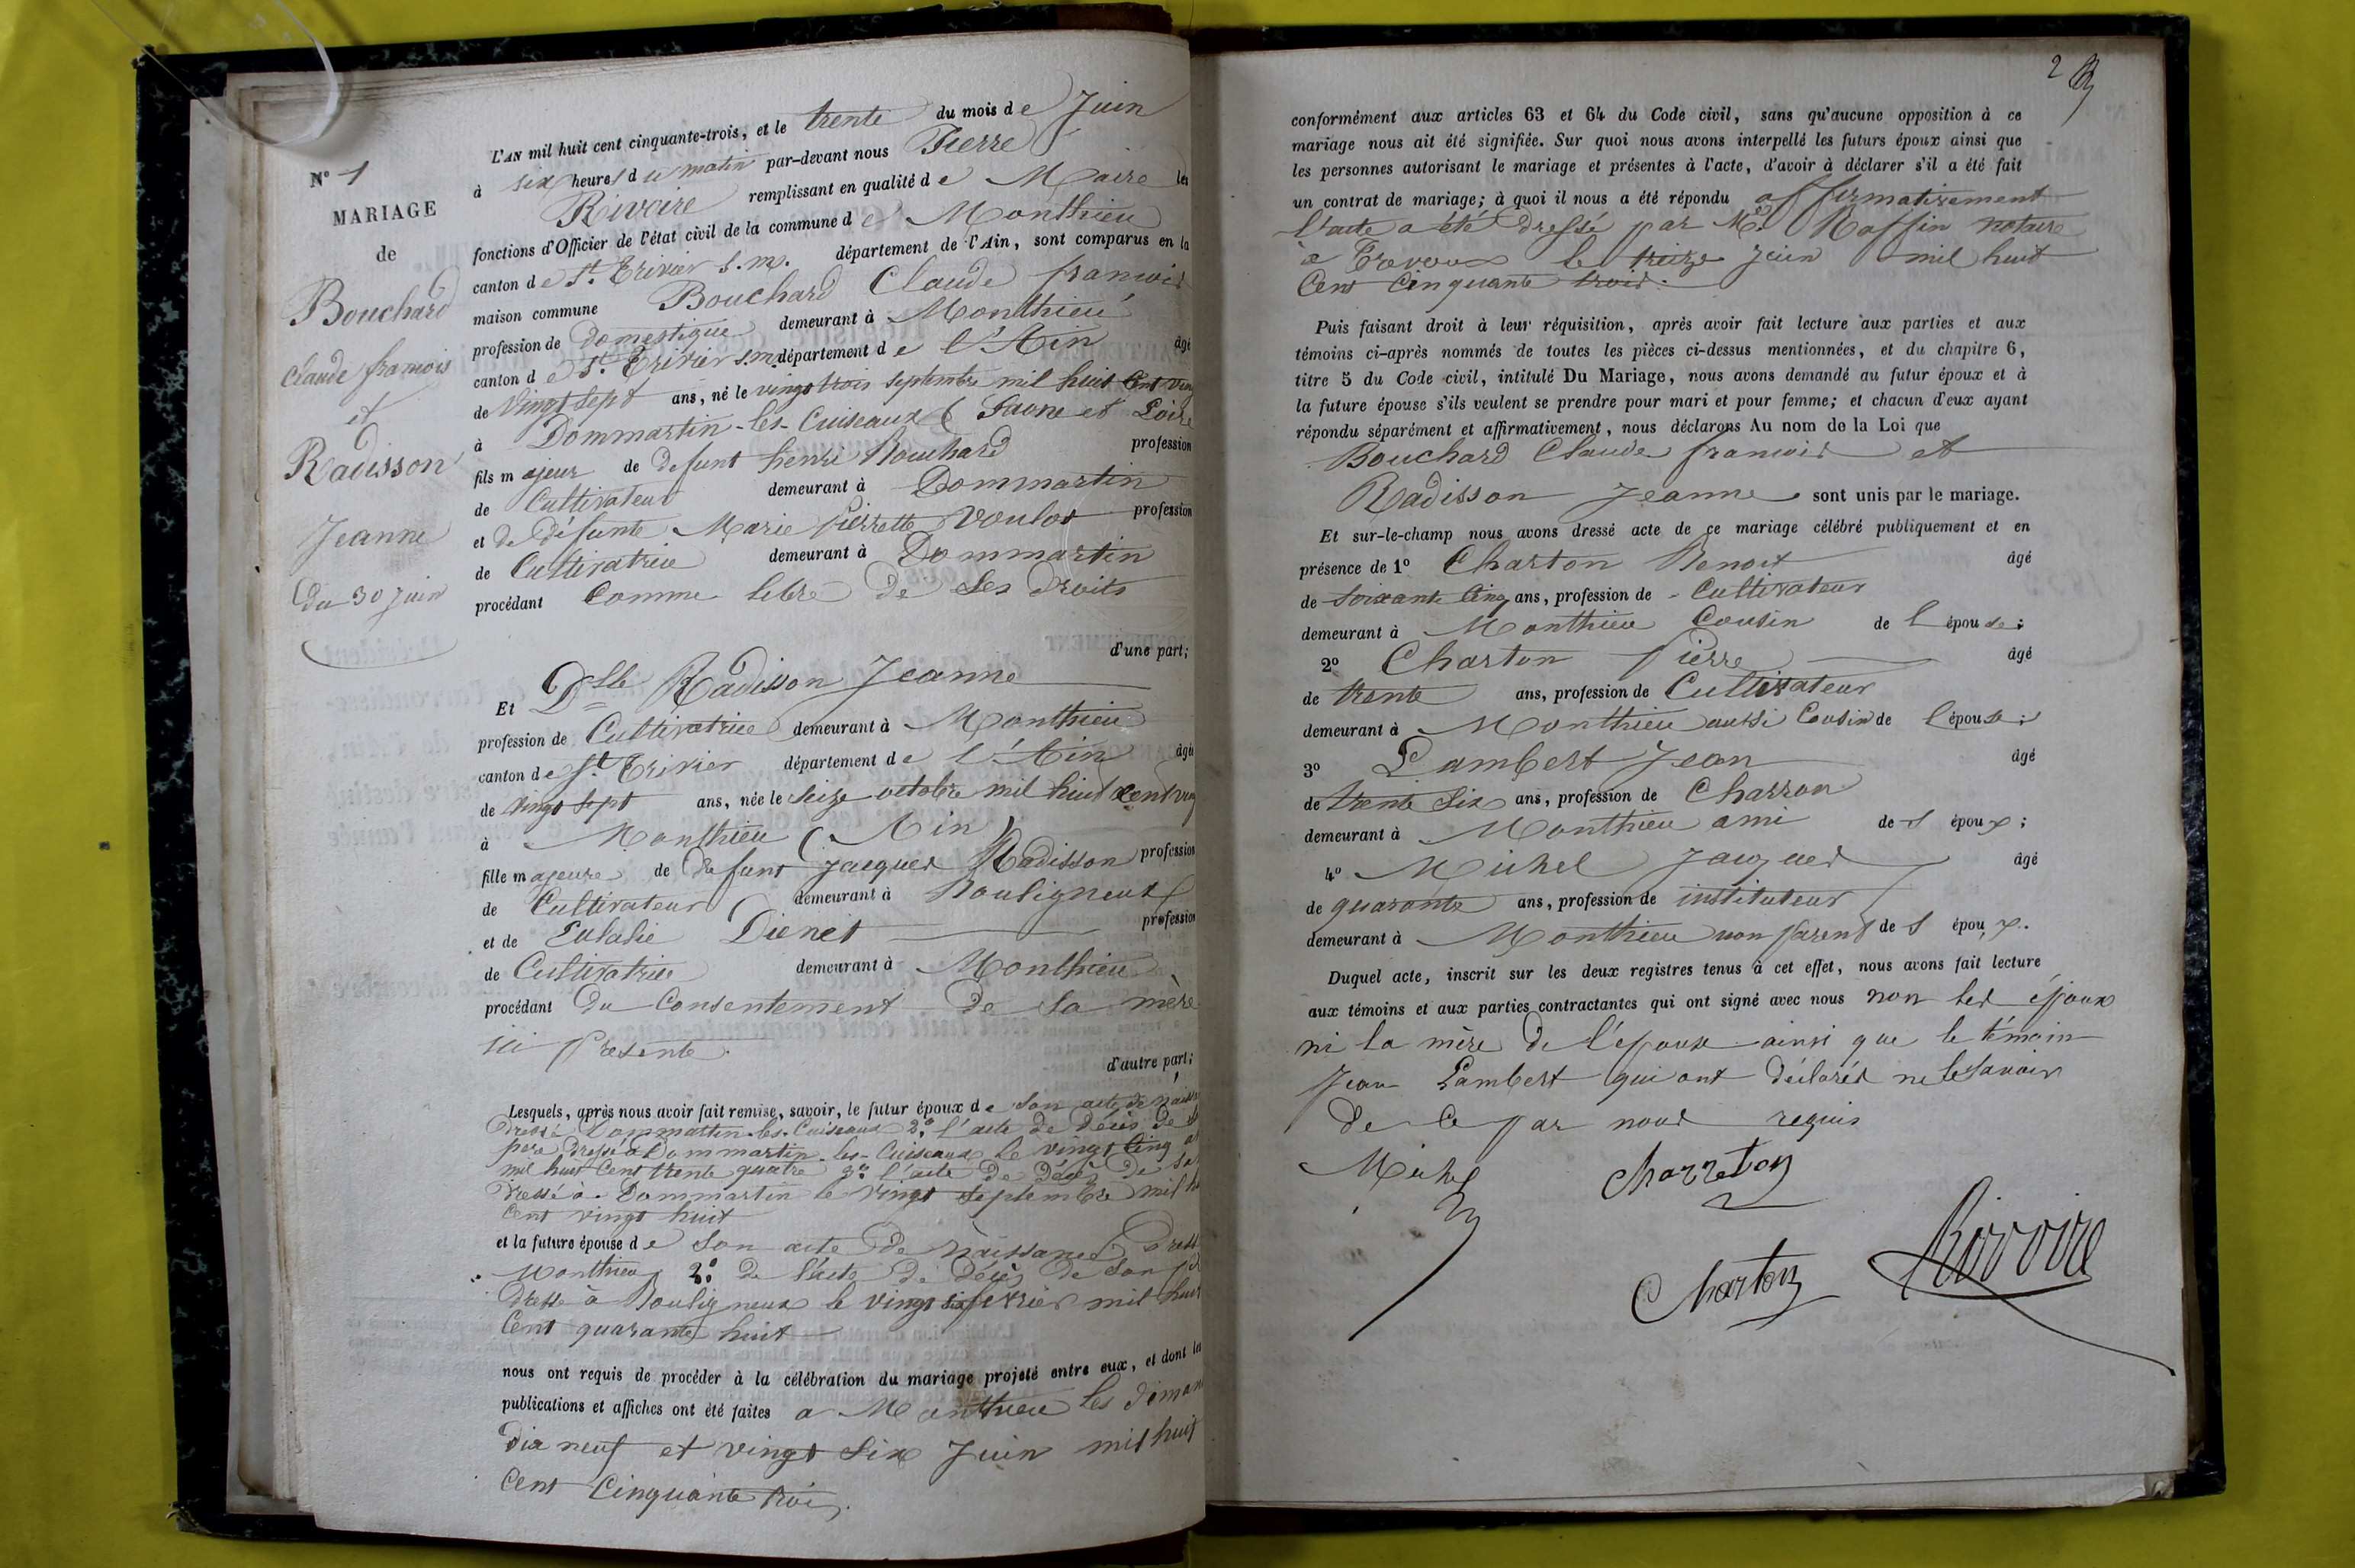 N° 1
MARIAGE
de
Bouchard
Claude francois
et
Radisson
Jeanne
du 30 Juin
L'AN mil huit cent cinquante-trois, et le trente du mois de Juin
à six heures du matin par-devant nous Pierre
Rivoire remplissant en qualité de Maire les
fonctions d'Officier de l'état civil de la commune de Monthieu
canton de St. Trivier s. m. département de l'Ain, sont comparus en la
maison commune Bouchard Claude francois
profession de domestique demeurant à Monthieu
canton de St. Trivier s.m. département de l'Ain âgé
de vingt sept ans, né le vingt trois septembre mil huit cent vingt
à Dommartin-les-Cuiseaux (Saone et Loire
fils majeur de defunt henri Bouchard profession
de Cultivateur demeurant à Dommartin
et de défunte Marie Pierrette Voulot profession
de Cultivatrice demeurant à Dommartin
procédant Comme libre de Ses droits
d'une part;
Et Dlle Radisson Jeanne
profession de Cultivatrice demeurant à Monthieu
canton de St. Trivier département de l'Ain âgée
de vingt sept ans, née le seize octobre mil huit cent ving
à Monthieu (Ain)
fille majeure de defunt Jacques Radisson profession
de Cultivateur demeurant à Bouligneux
et de Eulalie Dienet profession
de Cultivatrice demeurant à Monthieu
procédant du Consentement de sa mère
ici présente.
d'autre part;
Lesquels, après nous avoir fait remise, savoir, le futur époux de son acte de naiss
dressé Dommartin-les-Cuiseaux 2° l'acte de décès de
père dressé à Dommartin-les-Cuiseaux le vingt cinq
mil huit Cent trente quatre 3° l'acte de décès de sa
dressé à Dommartin le vingt septembre mil h
Cent vingt huit
et la future épouse de son acte de naissance dress
Monthieu 2° de l'acte de décès de son pè
dressé à Bouligneux le vingt six février mil huit
Cent quarante huit
nous ont requis de procéder à la célébration du mariage projeté entre eux, et dont les
publications et affiches ont été faites a Monthieu les diman
dix neuf et vingt Six Juin mil huit
Cent Cinquante trois.
2
conformément aux articles 63 et 64 du Code civil, sans qu'aucune opposition à ce
mariage nous ait été signifiée. Sur quoi nous avons interpellé les futurs époux ainsi que
les personnes autorisant le mariage et présentes à l'acte, d'avoir à déclarer s'il a été fait
un contrat de mariage; à quoi il nous a été répondu affirmativement
l'acte a été dressé par Me. Raffin notaire
à Trevoux le treize Juin mil huit
Cent Cinquante trois.
Puis faisant droit à leur réquisition, après avoir fait lecture aux parties et aux
témoins ci-après nommés de toutes les pièces ci-dessus mentionnées, et du chapitre 6,
titre 5 du Code civil, intitulé Du Mariage, nous avons demandé au futur époux et à
la future épouse s'ils veulent se prendre pour mari et pour femme; et chacun d'eux ayant
répondu séparément et affirmativement, nous déclarons Au nom de la Loi que
Bouchard Claude francois et
Radisson Jeanne sont unis par le mariage.
Et sur-le-champ nous avons dressé acte de ce mariage célébré publiquement et en
présence de 1° Charton Benoit âgé
de soixante Cinq ans, profession de Cultivateur
demeurant à Monthieu Cousin de l'épouse;
2° Charton Pierre âgé
de trente ans, profession de Cultivateur
demeurant à Monthieu aussi Cousin de l'épouse;
3° Lambert Jean âgé
de trente Six ans, profession de Charron
demeurant à Monthieu ami des époux;
4° Michel Jacques âgé
de quarante ans, profession de instituteur
demeurant à Monthieu non parent des époux.
Duquel acte, inscrit sur les deux registres tenus à cet effet, nous avons fait lecture
aux témoins et aux parties contractantes qui ont signé avec nous non les époux
ni la mère de l'épouse ainsi que le témoin
Jean Lambert qui ont déclarés ne le savoir
de ce par nous requis
Michel Charreton
Charton Rivoire